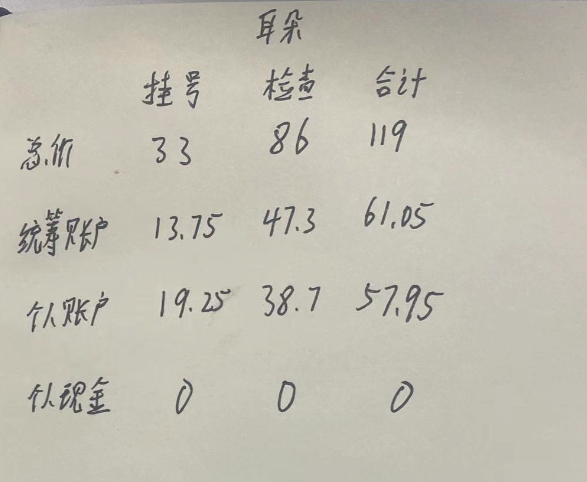 耳朵
挂号 检查 合计
总价 33 86 119
统筹账户 13.75 47.3 61.05
个人账户 19.25 38.7 57.95
个人现金 0 0 0